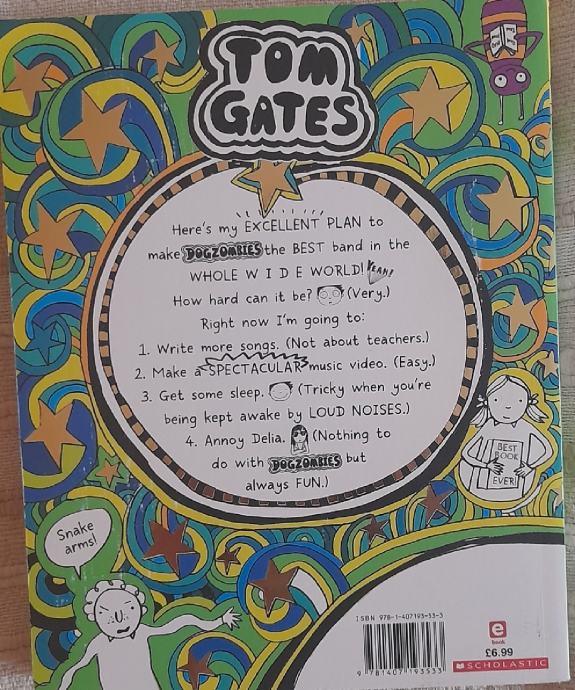 TOM
GATES
Here's my EXCELLENT PLAN to
make DOGZOMBIES the BEST band in the
WHOLE W I D E WORLD! YEAH!
How hard can it be? (Very.)
Right now I'm going to:
1. Write more songs. (Not about teachers.)
2. Make a SPECTACULAR music video. (Easy.)
3. Get some sleep. (Tricky when you're
being kept awake by LOUD NOISES.)
4. Annoy Delia. (Nothing to
do with DOGZOMBIES but
always FUN.)
BEST
BOOK
EVER!
Snake
arms!
ISBN 978-1-407193-53-3
9 781407 193533
e
book
£6.99
SCHOLASTIC